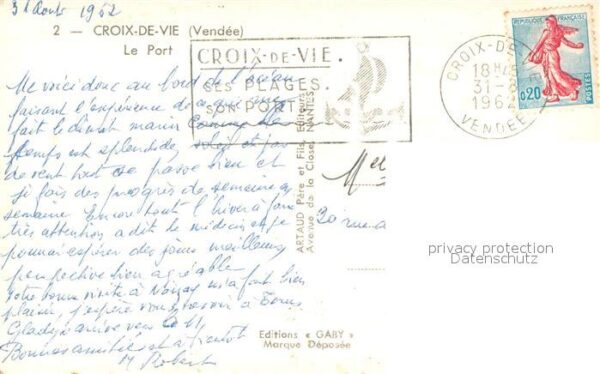 31 Août 1962
2 — CROIX-DE-VIE (Vendée)
Le Port
CROIX-DE-VIE.
SES PLAGES.
SON PORT
CROIX-DE-
18H45
31-8
1962
VENDÉE
REPUBLIQUE FRANÇAISE
0,20
POSTES
Me voici donc au bord de l'océan
faisant l'expérience de ce que
fait le climat marin
temps est splendide, soleil et pas
de vent tout se passe bien et
je fais des progrès de semaine en
semaine. Encore tout l'hiver à faire
très attention a dit le médecin et je
pourrai espérer des jours meilleurs,
perspective bien agréable.
Votre bonne visite à m'a fait bien
plaisir, j'espère vous revoir à Tours
Gladys arrive vers
Bonnes amitiés et à bientôt
M Robert
Mel
30 rue
ARTAUD Père et Fils, Editeurs
Avenue de la Close, NANTES
privacy protection
Datenschutz
Editions « GABY »
Marque Déposée